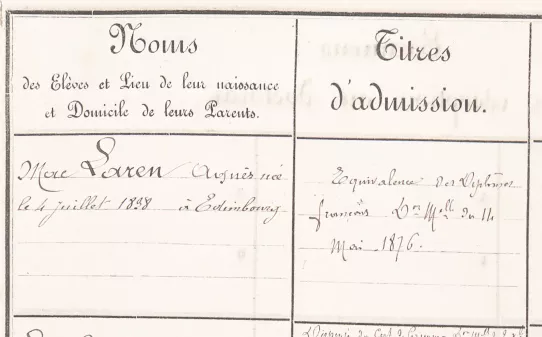 Noms
des Elèves et Lieu de leur naissance
et Domicile de leurs Parents.
Titres
d'admission.
Mac Laren Agnès née
le 4 juillet 1838 à Edimbourg
Equivalence des Diplômes
français Don Mell du 14
Mai 1876.